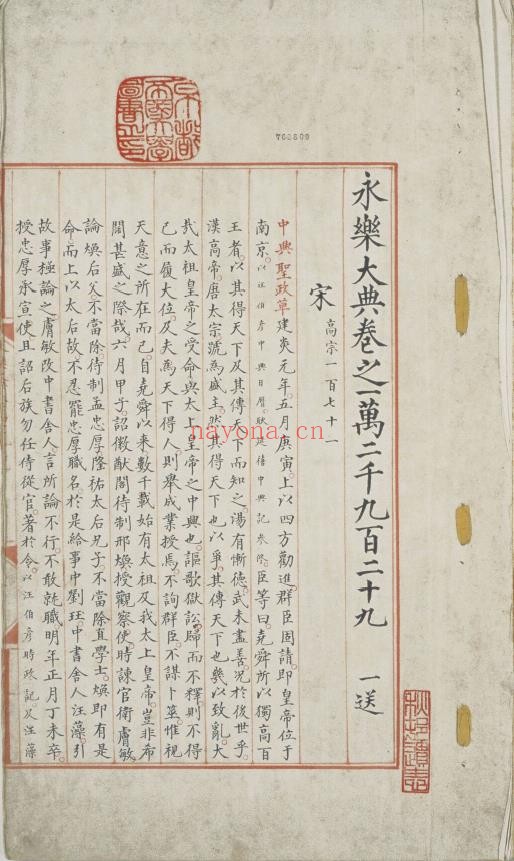 永樂大典卷之一萬二千九百二十九 一送
宋 高宗一百七十一
中興聖政草建炎元年五月庚寅上以四方勸進群臣固請即皇帝位于
南京以汪伯彥中興日曆耿延禧中興記參修臣等曰堯舜所以獨高百
王者以其得天下及其傳天下而知之湯有慚德武未盡善況於後世乎
漢高帝唐太宗號為盛主然其得天下也以爭其傳天下也幾以致亂大
哉太祖皇帝之受命與太上皇帝之中興也謳歌獄訟歸而不釋則不得
已而履大位及夫為天下得人則舉成業授焉不詢群臣不謀卜筮惟視
天意之所在而已自堯舜以來數千載始有太祖及我太上皇帝豈非希
闊甚盛之際哉六月甲子詔徽猷閣待制邢煥授觀察使時諫官衛膚敏
論煥后父不當除待制孟忠厚隆祐太后兄子不當除直學士煥即有是
命而上以太后故不忍罷忠厚職名於是給事中劉珏中書舍人汪藻引
故事極論之膚敏改中書舍人言所論不行不敢就職明年正月丁未卒
授忠厚承宣使且詔后族勿任侍從官著於令以汪伯彥時政記及汪藻
nayona.cn